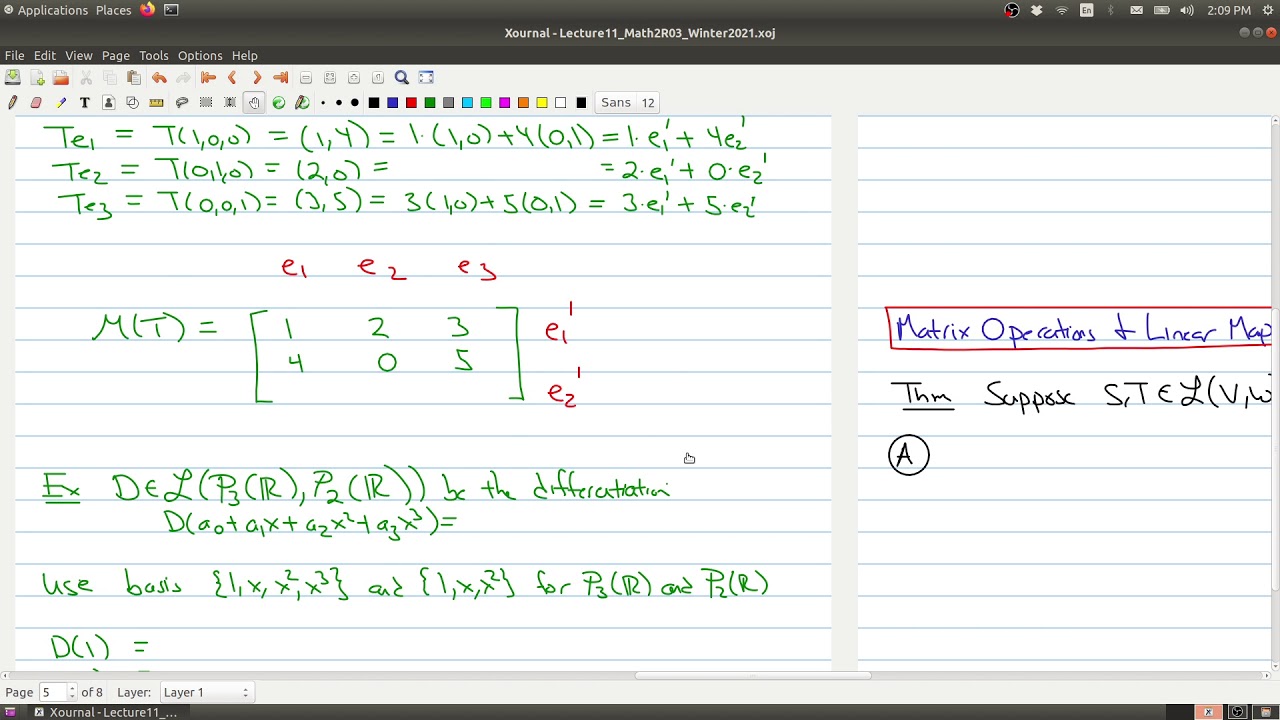 Applications Places En 2:09 PM
Xournal - Lecture11_Math2R03_Winter2021.xoj
File Edit View Page Tools Options Help
Sans 12
Te₁ = T(1,0,0) = (1,4) = 1·(1,0)+4(0,1) = 1·e₁' + 4e₂'
Te₂ = T(0,1,0) = (2,0) = = 2·e₁' + 0·e₂'
Te₃ = T(0,0,1) = (3,5) = 3(1,0)+5(0,1) = 3·e₁' + 5·e₂'
e₁ e₂ e₃
M(T) = [ 1 2 3 ] e₁'
4 0 5
e₂'
Ex D∈ℒ(P₃(ℝ), P₂(ℝ)) be the differentiation
D(a₀+a₁x+a₂x²+a₃x³)=
Use basis {1,x,x²,x³} and {1,x,x²} for P₃(ℝ) and P₂(ℝ)
D(1) =
Matrix Operations & Linear Map
Thm Suppose S,T∈ℒ(V,W
A
Page 5 of 8 Layer: Layer 1
Xournal - Lecture11_...